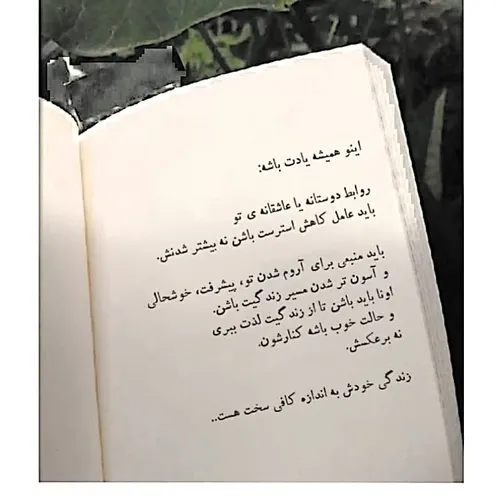 اینو همیشه یادت باشه:
روابط دوستانه یا عاشقانه ی تو
باید عامل کاهش استرست باشن نه بیشتر شدنش.
باید منبعی برای آروم شدن تو، پیشرفت، خوشحالی
و آسون تر شدن مسیر زندگیت باشن.
اونا باید باشن تا از زندگیت لذت ببری
و حالت خوب باشه کنارشون.
نه برعکسش.
زندگی خودش به اندازه کافی سخت هست..